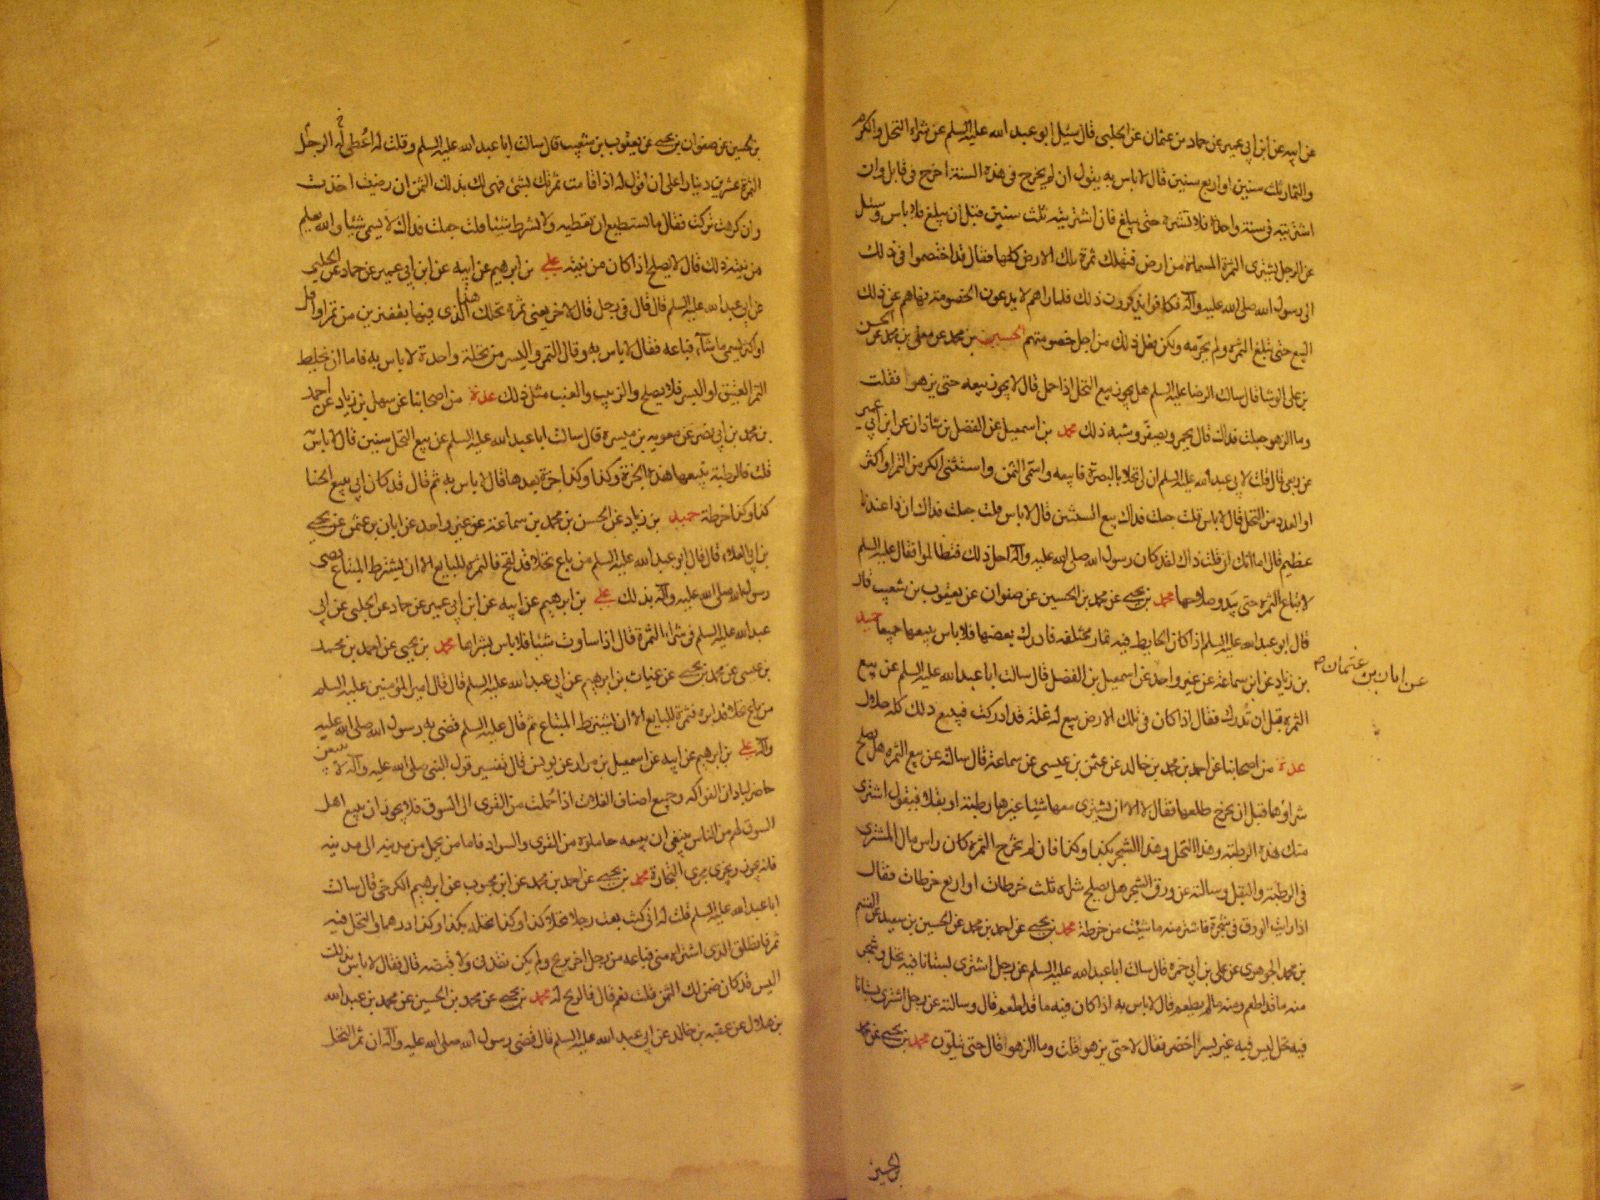 عن ابيه عن ابن ابي عمير عن حماد بن عثمان عن الحلبي قال سئل ابو عبد الله عليه السلم عن شراء النخل والكرم
والثمار ثلث سنين او اربع سنين قال لا باس به يقول ان لم يخرج في هذه السنة اخرج في قابل وان
اشتريته في سنة واحدة فلا تشتره حتى يبلغ فان اشتريته ثلث سنين قبل ان يبلغ فلا باس وسئل
عن الرجل يشترى الثمرة المسماة من ارض فتهلك ثمرة تلك الارض كلها فقال قد اختصموا في ذلك
الى رسول الله صلى الله عليه وآله فكانوا يذكرون ذلك فلما راهم لا يدعون الخصومة نهاهم عن ذلك
البيع حتى تبلغ الثمرة ولم يحرمه ولكن فعل ذلك من اجل خصومتهم الحسين بن محمد عن معلى بن محمد عن الحسن
بن على الوشا قال سالت الرضا عليه السلم هل يجوز بيع النخل اذا حمل قال لا يجوز بيعه حتى يزهوا فقلت
وما الزهو جعلت فداك قال يحمر ويصفر وشبه ذلك محمد بن اسمعيل عن الفضل بن شاذان عن ابن ابي عمير
عن ربعي قال قلت لابي عبد الله عليه السلم ان لي نخلا بالبصرة فابيعه واسمى الثمن واستثنى الكر من الثمر او اكثر
او العدد من النخل قال لا باس قلت جعلت فداك بيع السنتين قال لا باس قلت جعلت فداك ان ذا عندنا
عظيم قال اما انك ان قلت ذاك لقد كان رسول الله صلى الله عليه وآله احل ذلك فتظالموا فقال عليه السلم
لا تباع الثمرة حتى يبدو صلاحها محمد بن يحيى عن محمد بن الحسين عن صفوان عن يعقوب بن شعيب قال
قال ابو عبد الله عليه السلم اذا كان الحايط فيه ثمار مختلفه فادرك بعضها فلا باس ببيعها جميعا حميد
بن زياد عن ابن سماعة عن غير واحد عن اسمعيل بن الفضل قال سالت ابا عبد الله عليه السلم عن بيع
عن ابان بن عثمان
الثمرة قبل ان تدرك فقال اذا كان في تلك الارض بيع له غلة قد ادركت فبيع ذلك كله حلال
عدة من اصحابنا عن احمد بن محمد بن خالد عن عثمن بن عيسى عن سماعة قال سالته عن بيع الثمرة هل يصلح
شراؤها قبل ان يخرج طلعها فقال لا الا ان يشترى معها شيئا غيرها رطبة او بقلا فيقول اشترى
منك هذه الرطبة وهذا النخل وهذا الشجر بكذا وكذا فان لم تخرج الثمرة كان راس مال المشترى
في الرطبة والبقل وسالته عن ورق الشجر هل يصلح شراه ثلث خرطات او اربع خرطات فقال
اذا رايت الورق في شجرة فاشتر منه ما شئت من خرطة محمد بن يحيى عن احمد بن محمد عن الحسين بن سعيد عن القسم
بن محمد الجوهري عن على بن ابي حمزه قال سالت ابا عبد الله عليه السلم عن رجل اشترى بستانا فيه نخل وشجر
منه ما قد اطعم ومنه ما لم يطعم قال لا باس به اذا كان فيه ما قد اطعم قال وسالته عن رجل اشترى بستانا
فيه نخل ليس فيه غير بسرا اخضر فقال لا حتى يزهو قلت وما الزهوا قال حتى يتلون محمد بن يحيى عن محمد
بن الحسين
بن الحسين عن صفوان بن يحيى عن يعقوب بن شعيب قال سالت ابا عبد الله عليه السلم وقلت له اعطى له الرجل
الثمرة عشرين دينارا على ان اقول له اذا قامت ثمرتك بشئ فهى لك بذلك الثمن ان رضيت اخذت
وان كرهت تركت فقال ما تستطيع ان تعطيه ولا تشترط شيئا قلت جعلت فداك لا يسمى شيئا والله يعلم
من نيته ذلك قال لا يصلح اذا كان من نيته على بن ابراهيم عن ابيه عن ابن ابي عمير عن حماد عن الحلبي
عن ابي عبد الله عليه السلم قال قال في رجل قال لاخر بعنى ثمرة نخلك هذا الذى فيها بقفيزين من تمر او اقل
او اكثر يسمى ما شاء فباعه فقال لا باس به وقال التمر والبسر من نخلة واحدة لا باس به فاما ان يخلط
التمر العتيق او البسر فلا يصلح والزبيب والعنب مثل ذلك عدة من اصحابنا عن سهل بن زياد عن احمد
بن محمد بن ابي نصر عن معويه بن ميسره قال سالت ابا عبد الله عليه السلم عن بيع النخل سنين قال لا باس به
قلت فالرطبة يبيعها هذه الجزة وكذا وكذا جزة بعدها قال لا باس به ثم قال قد كان ابي يبيع الحنا
كذا وكذا خرطة حميد بن زياد عن الحسن بن محمد بن سماعة عن غير واحد عن ابان بن عثمن عن يحيى
بن ابي العلاء قال قال ابو عبد الله عليه السلم من باع نخلا قد لقح فالثمرة للبايع الا ان يشترط المبتاع قضى
رسول الله صلى الله عليه وآله بذلك على بن ابرهيم عن ابيه عن ابن ابي عمير عن حماد عن الحلبي عن ابي
عبد الله عليه السلم في شراء الثمرة قال اذا ساوت شيئا فلا باس بشراءها محمد بن يحيى عن احمد بن محمد
بن عيسى عن محمد بن يحيى عن غياث بن ابرهيم عن ابي عبد الله عليه السلم قال قال امير المؤمنين عليه السلم
من باع نخلا قد ابره فثمرة للبايع الا ان يشترط المبتاع ثم قال عليه السلم قضى به رسول الله صلى الله عليه
وآله على بن ابرهيم عن ابيه عن اسمعيل بن مرار عن يونس قال تفسير قول النبي صلى الله عليه وآله لا يبيعن
حاضر لباد ان الفواكه وجميع اصناف الغلات اذا حملت من القرى الى السوق فلا يجوز ان يبيع اهل
السوق لهم من الناس ينبغى ان يبيعه حاملوه من القرى والسواد فاما من يحمل من مدينه الى مدينه
فانه يجوز ويجرى مجرى التجارة محمد بن يحيى عن احمد بن محمد عن ابن محبوب عن ابرهيم الكرخى قال سالت
ابا عبد الله عليه السلم قلت له انى كنت بعت رجلا نخلا كذا وكذا نخله بكذا وكذا درهما والنخل فيه
ثمر فانطلق الذى اشتراه منى فباعه من رجل اخر بربح ولم يكن نقدنى ولا قبضه قال فقال لا باس بذلك
اليس قد كان ضمن لك الثمن قلت نعم قال فالربح له محمد بن يحيى عن محمد بن الحسين عن محمد بن عبد الله
بن هلال عن عقبه بن خالد عن ابي عبد الله عليه السلم قال قضى رسول الله صلى الله عليه وآله ان ثمر النخل